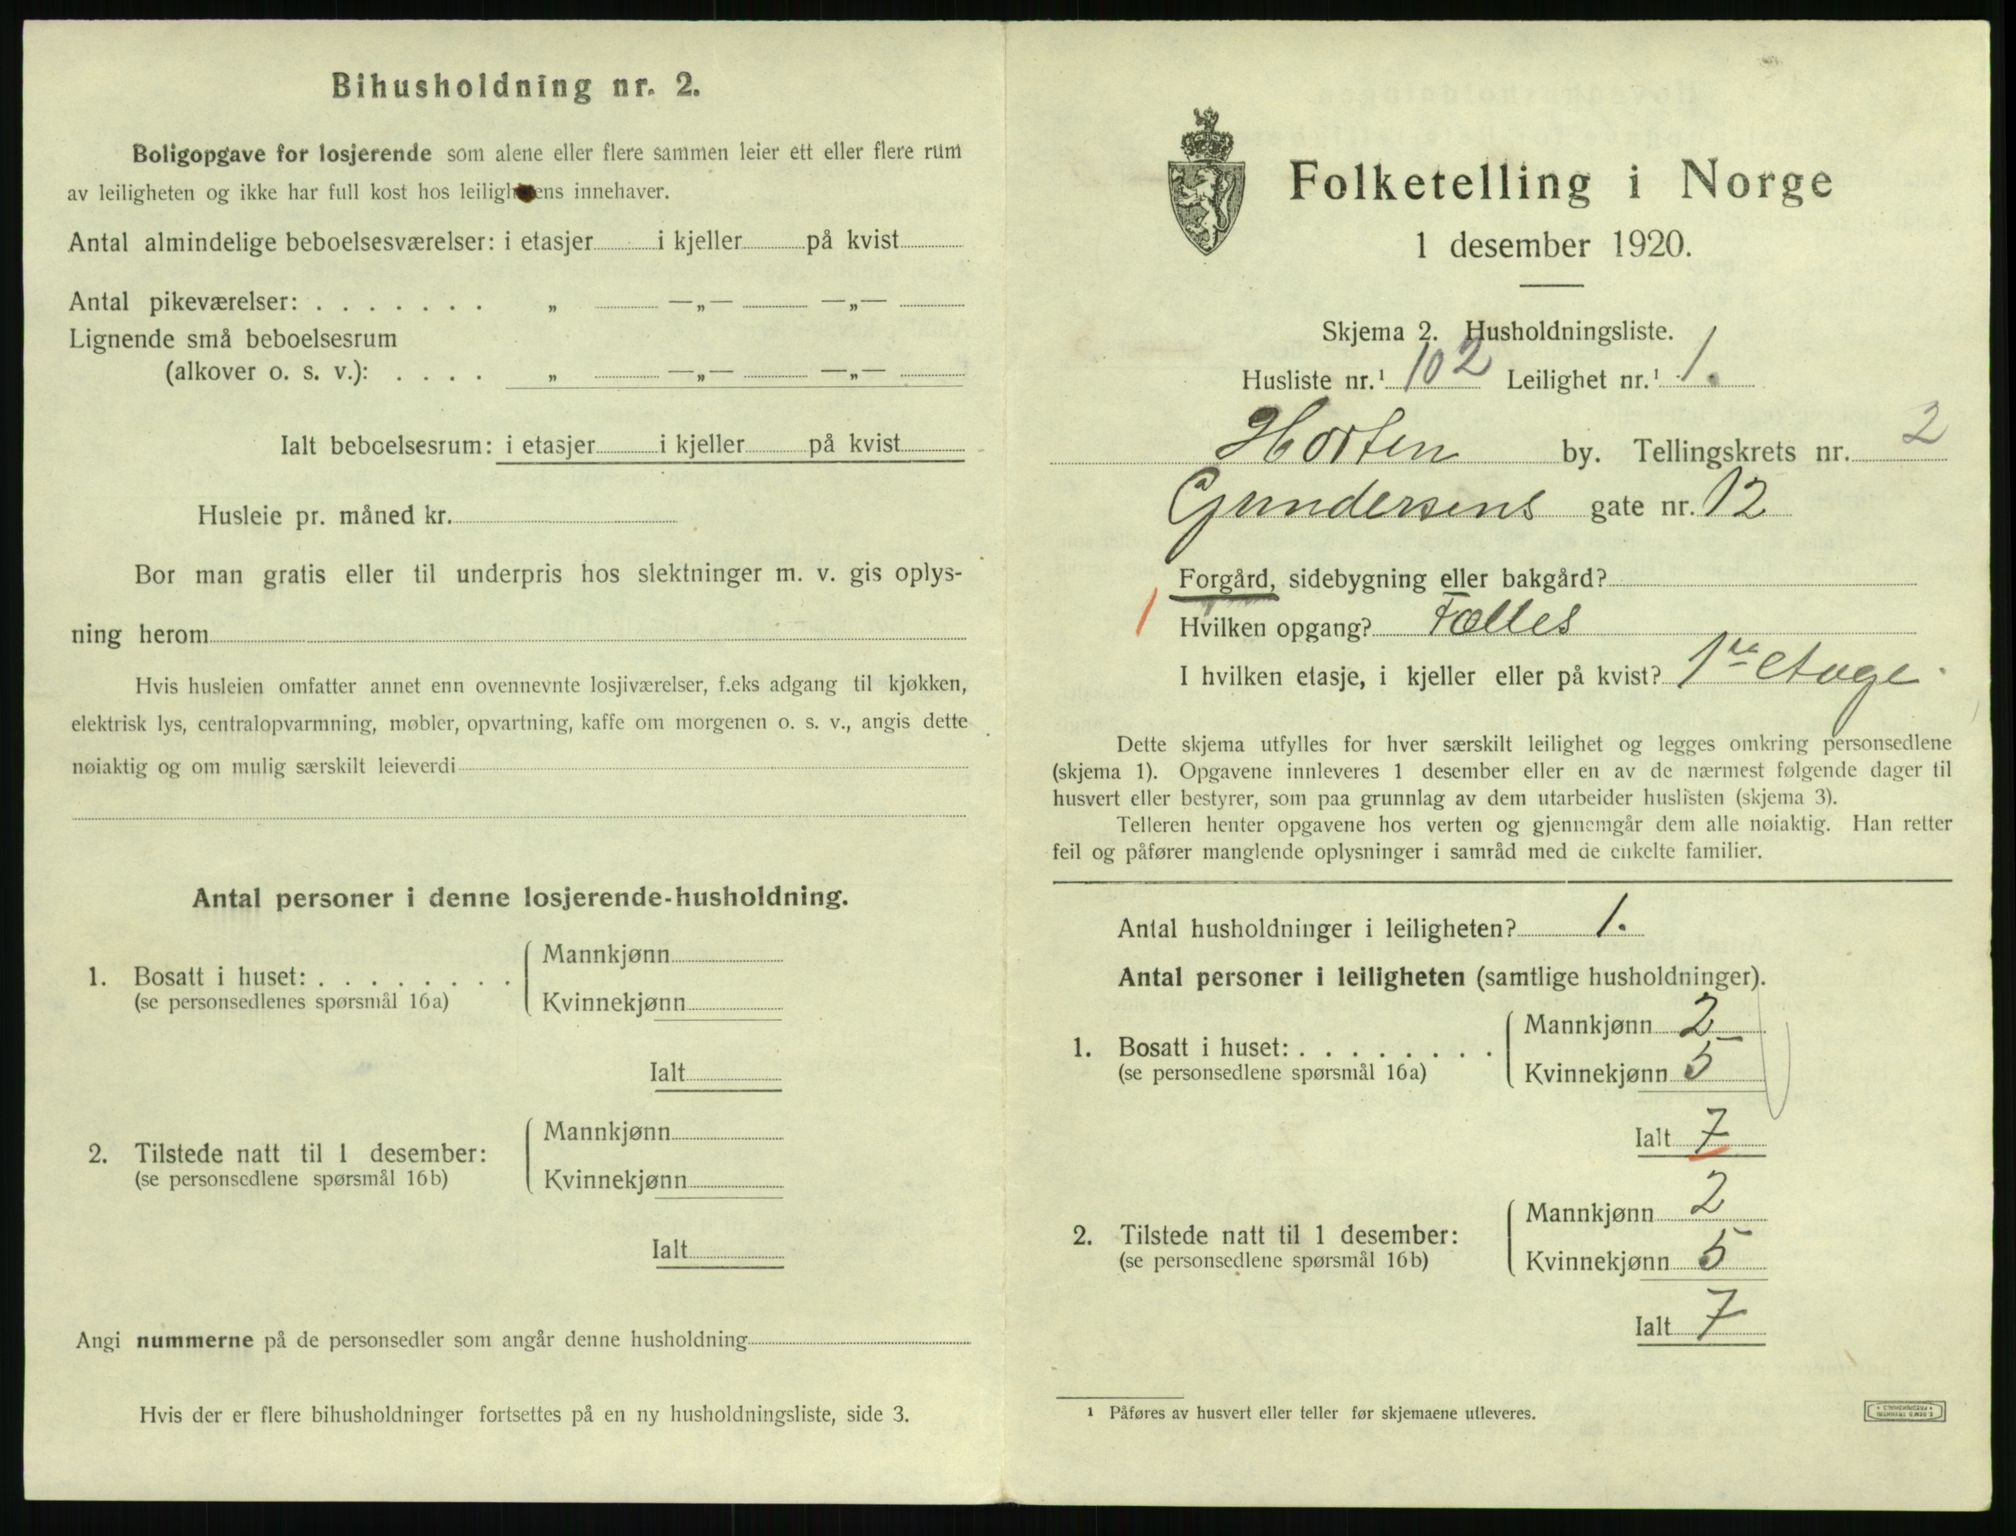 Bihusholdning nr. 2.
Boligopgave for losjerende som alene eller flere sammen leier ett eller flere rum
av leiligheten og ikke har full kost hos leilighetens innehaver.
Antal almindelige beboelsesværelser: i etasjer i kjeller på kvist
Antal pikeværelser: . . . . . . . „ —„— —„—
Lignende små beboelsesrum
(alkover o. s. v.): . . . . „ —„— —„—
Ialt beboelsesrum: i etasjer i kjeller på kvist
Husleie pr. måned kr.
Bor man gratis eller til underpris hos slektninger m. v. gis oplys-
ning herom
Hvis husleien omfatter annet enn ovennevnte losjiværelser, f.eks adgang til kjøkken,
elektrisk lys, centralopvarmning, møbler, opvartning, kaffe om morgenen o. s. v., angis dette
nøiaktig og om mulig særskilt leieverdi
Antal personer i denne losjerende-husholdning.
1. Bosatt i huset: . . . . . . . .
(se personsedlenes spørsmål 16a)
Mannkjønn
Kvinnekjønn
Ialt
2. Tilstede natt til 1 desember:
(se personsedlene spørsmål 16b)
Mannkjønn
Kvinnekjønn
Ialt
Angi nummerne på de personsedler som angår denne husholdning
Hvis der er flere bihusholdninger fortsettes på en ny husholdningsliste, side 3.
Folketelling i Norge
1 desember 1920.
Skjema 2. Husholdningsliste.
Husliste nr.¹ 102 Leilighet nr.¹ 1.
Horten by. Tellingskrets nr. 2
Gundersens gate nr. 12
Forgård, sidebygning eller bakgård?
1 Hvilken opgang? Fælles
I hvilken etasje, i kjeller eller på kvist? 1re etage.
Dette skjema utfylles for hver særskilt leilighet og legges omkring personsedlene
(skjema 1). Opgavene innleveres 1 desember eller en av de nærmest følgende dager til
husvert eller bestyrer, som paa grunnlag av dem utarbeider huslisten (skjema 3).
Telleren henter opgavene hos verten og gjennemgår dem alle nøiaktig. Han retter
feil og påfører manglende oplysninger i samråd med de enkelte familier.
Antal husholdninger i leiligheten? 1.
Antal personer i leiligheten (samtlige husholdninger).
1. Bosatt i huset: . . . . . . . .
(se personsedlene spørsmål 16a)
Mannkjønn 2
Kvinnekjønn 5
Ialt 7
2. Tilstede natt til 1 desember:
(se personsedlene spørsmål 16b)
Mannkjønn 2
Kvinnekjønn 5
Ialt 7
¹ Påføres av husvert eller teller før skjemaene utleveres.